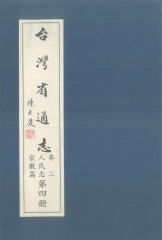 台灣省通志
陳大慶
卷二
人民志
宗教篇
第四册